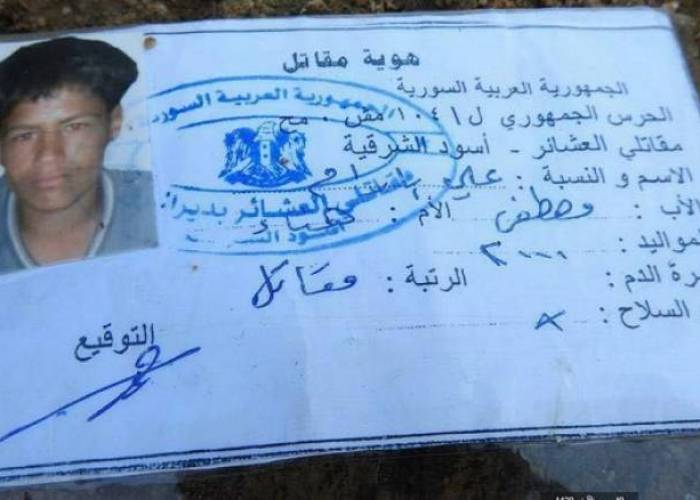 هوية مقاتل
الجمهورية العربية السورية
الحرس الجمهوري ل/١٠٤ مقس . مح
مقاتلي العشائر - أسود الشرقية
الاسم و النسبة : علي
الأب : مصطفى الأم :
المواليد : ٢٠٠٠
زمرة الدم : الرتبة : مقاتل
السلاح :
التوقيع
الجمهورية العربية السورية
مقاتلي العشائر بدير
أسود